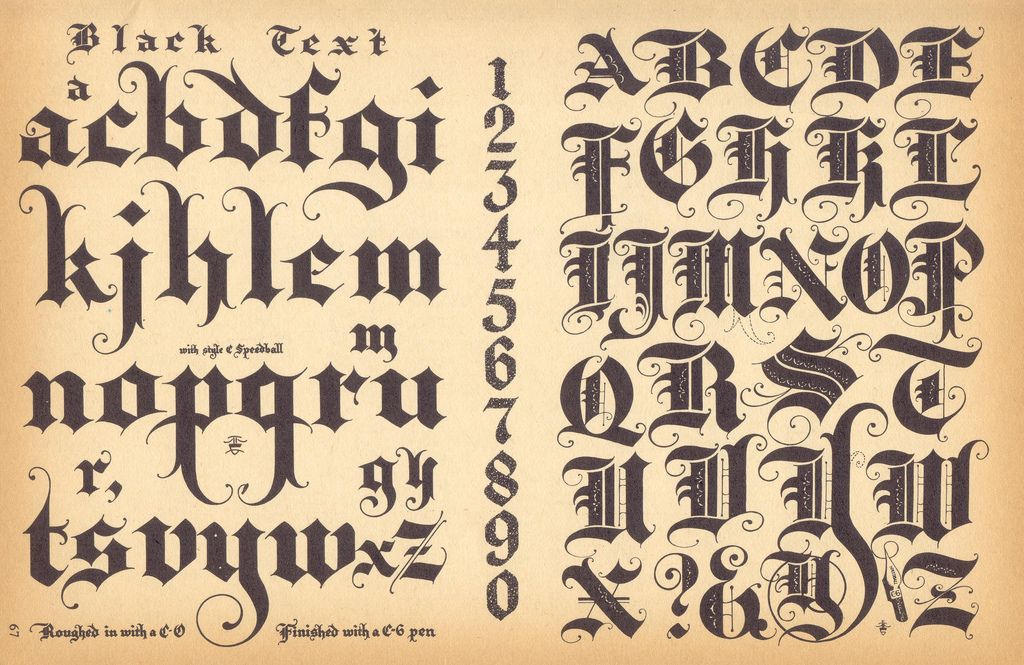 Black Text
a
acbdfgi
kjhlem
m
with style C Speedball
nopqru
r, gy
tsvywxz
67
Roughed in with a C-0 Finished with a C-6 pen
1
2
3
4
5
6
7
8
9
0
ABCDE
FGHKL
IJMNOP
QRST
UVYW
X?&YZ